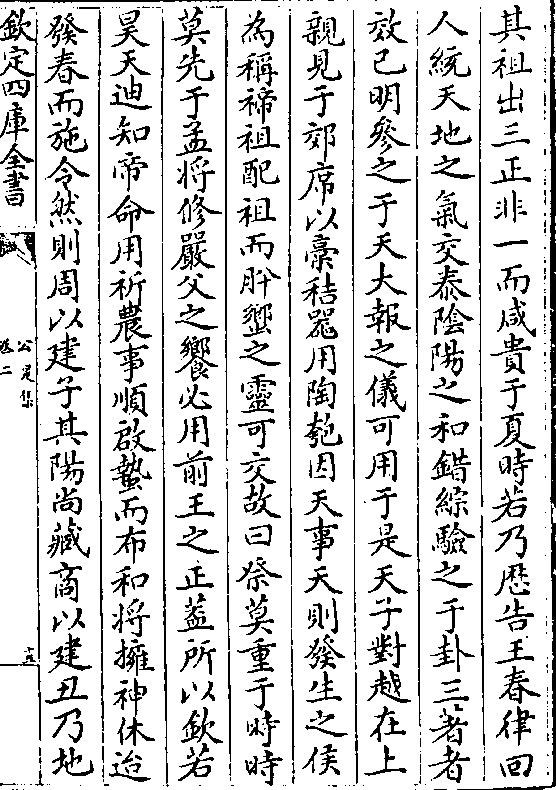 其祖出三正非一而咸貴于夏時若乃厯告王春律回
人統天地之氣交泰陰陽之和錯綜驗之于卦三著者
效已明參之于天大報之儀可用于是天子對越在上
親見于郊席以藁秸器用陶匏因天事天則發生之侯
為稱禘祖配祖而肸蠁之靈可交故曰祭莫重于時時
莫先于孟將修嚴父之饗必用前王之正葢所以欽若
昊天迪知帝命用祈農事順啟蟄而布和將擁神休迨
發春而施令然則周以建子其陽尚藏商以建丑乃地
欽定四庫全書
公是集
卷二